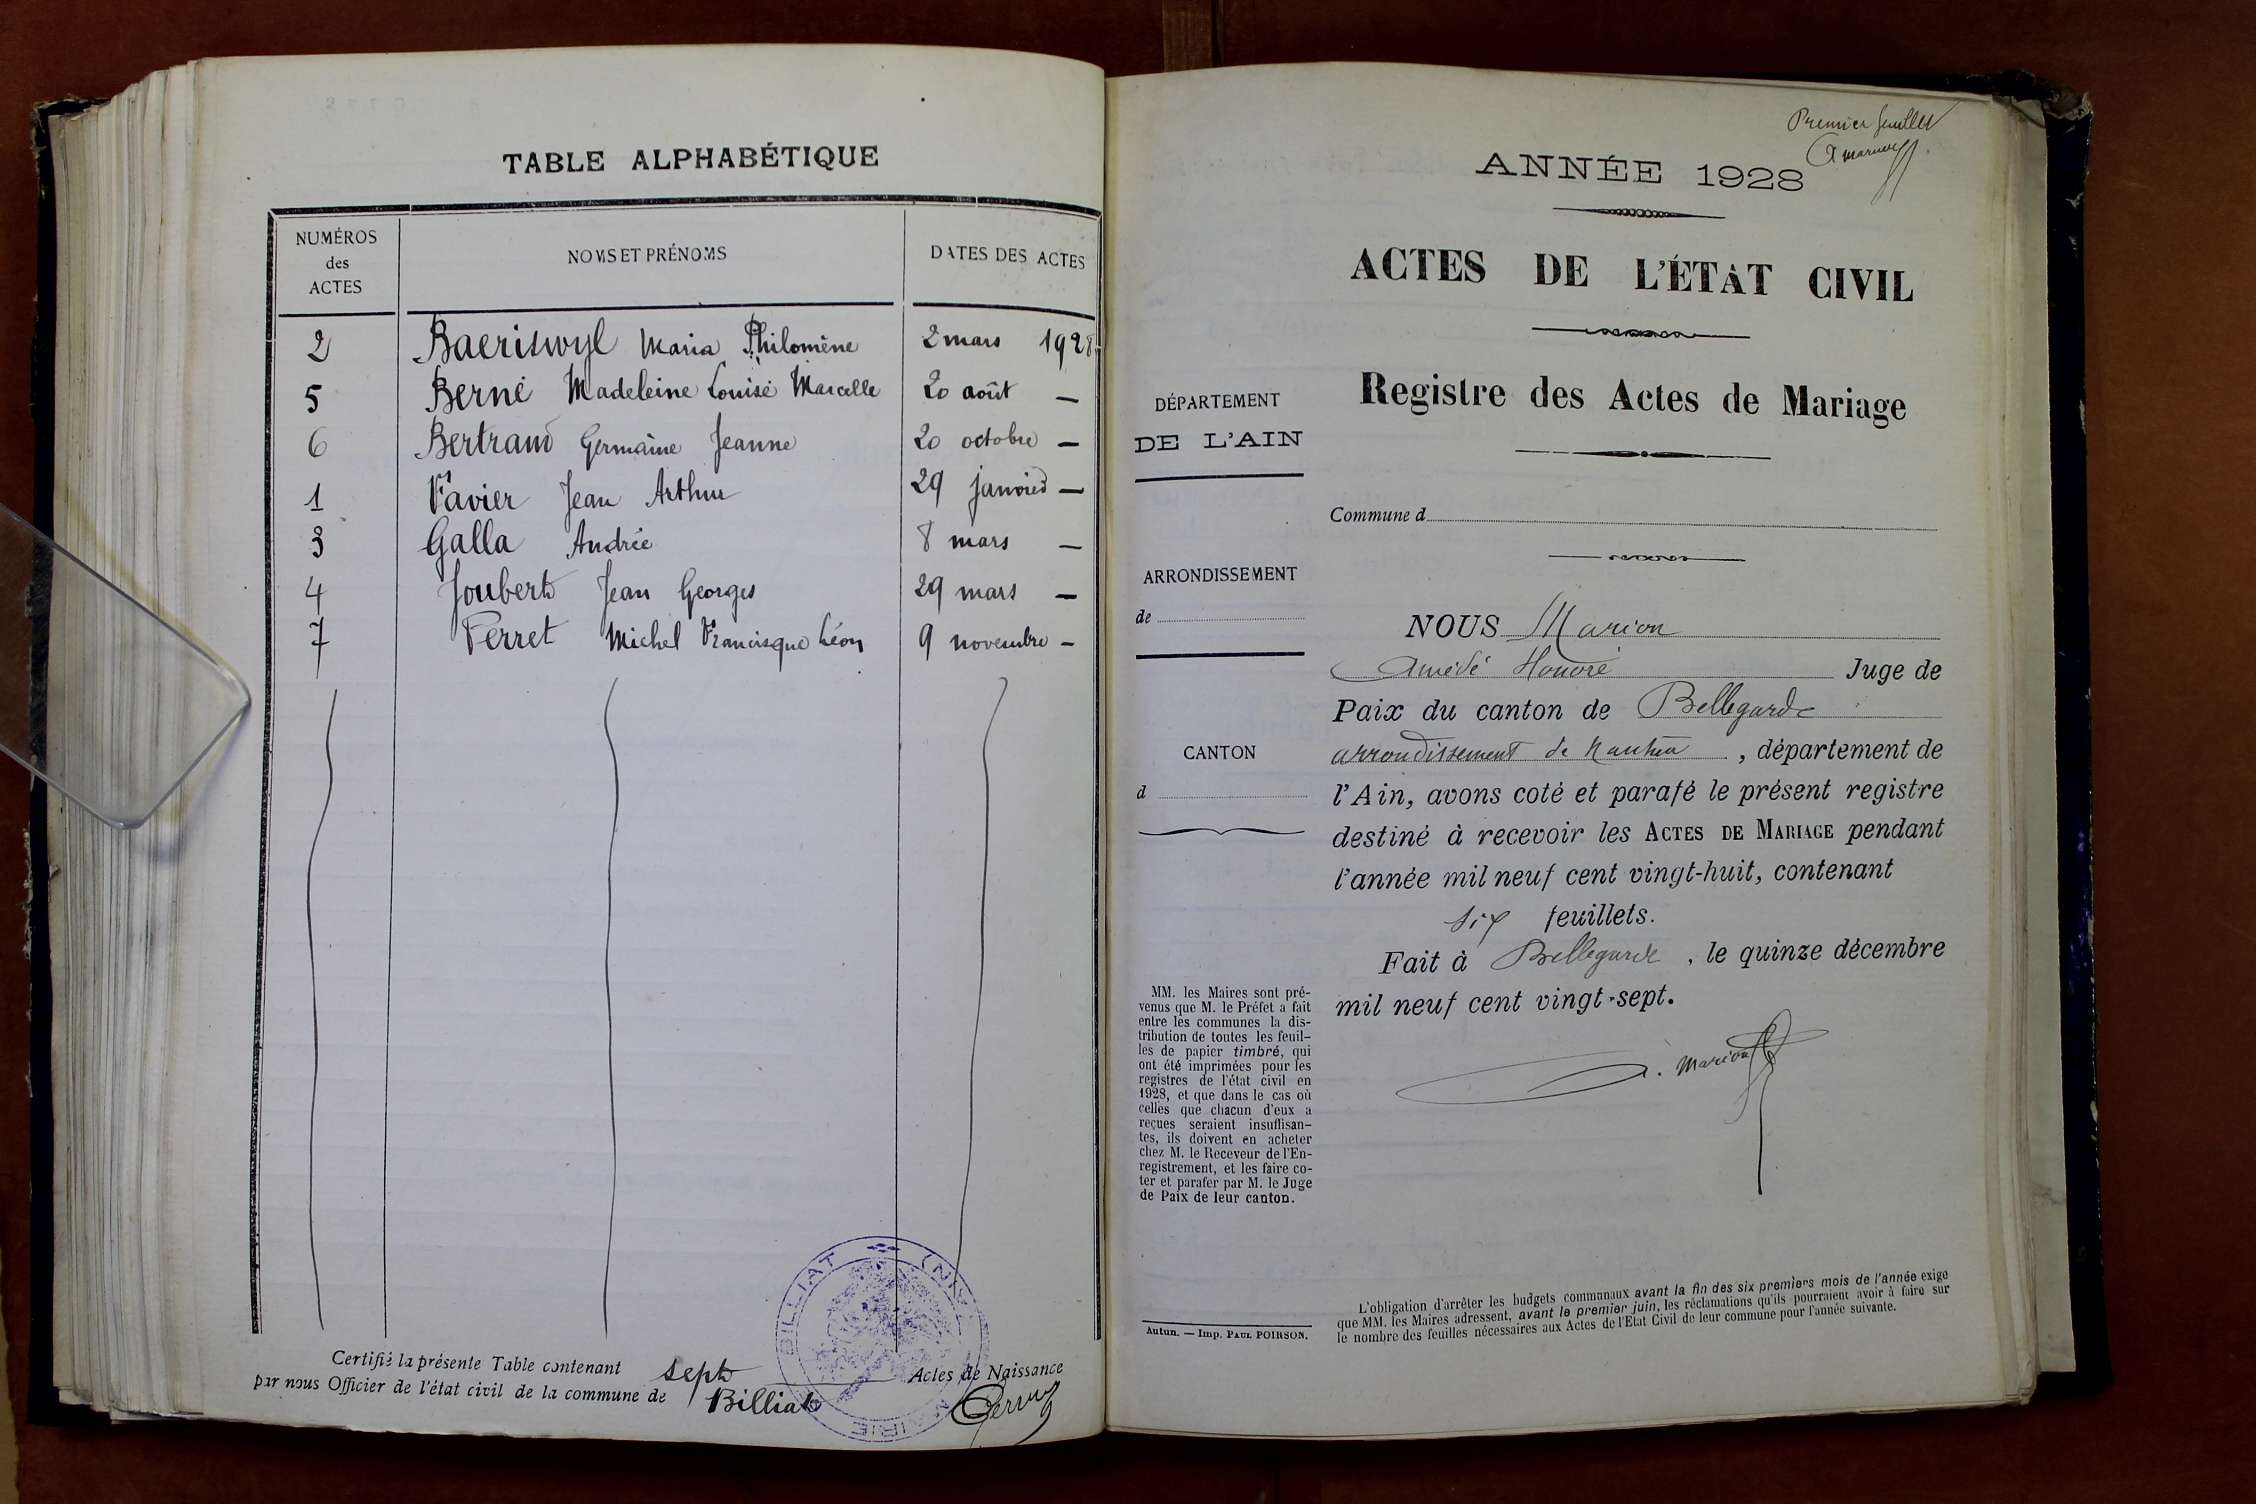 TABLE ALPHABÉTIQUE
NUMÉROS des ACTES NOMS ET PRÉNOMS DATES DES ACTES
2 Baeriswyl Maria Philomène 2 mars 1928
5 Berne Madeleine Louise Marcelle 20 août —
6 Bertrand Germaine Jeanne 20 octobre —
1 Favier Jean Arthur 29 janvier —
3 Galla Andrée 8 mars —
4 Joubert Jean Georges 29 mars —
7 Perret Michel Francisque Léon 9 novembre —
BILLIAT (AIN)
MAIRIE
Certifié la présente Table contenant sept Actes de Naissance
par nous Officier de l'état civil de la commune de Billiat
Premier feuillet
A marion
ANNÉE 1928
ACTES DE L'ÉTAT CIVIL
Registre des Actes de Mariage
DÉPARTEMENT
DE L'AIN
Commune d
ARRONDISSEMENT
de
CANTON
d
NOUS Marion
Amédé Honoré Juge de
Paix du canton de Bellegarde
arrondissement de Nantua, département de
l'Ain, avons coté et parafé le présent registre
destiné à recevoir les ACTES DE MARIAGE pendant
l'année mil neuf cent vingt-huit, contenant
six feuillets.
Fait à Bellegarde, le quinze décembre
mil neuf cent vingt-sept.
A. Marion
MM. les Maires sont pré-
venus que M. le Préfet a fait
entre les communes la dis-
tribution de toutes les feuil-
les de papier timbré, qui
ont été imprimées pour les
registres de l'état civil en
1928, et que dans le cas où
celles que chacun d'eux a
reçues seraient insuffisan-
tes, ils doivent en acheter
chez M. le Receveur de l'En-
registrement, et les faire co-
ter et parafer par M. le Juge
de Paix de leur canton.
Autun. — Imp. PAUL POIRSON.
L'obligation d'arrêter les budgets communaux avant la fin des six premiers mois de l'année exige
que MM. les Maires adressent, avant le premier juin, les réclamations qu'ils pourraient avoir à faire sur
le nombre des feuilles nécessaires aux Actes de l'Etat Civil de leur commune pour l'année suivante.